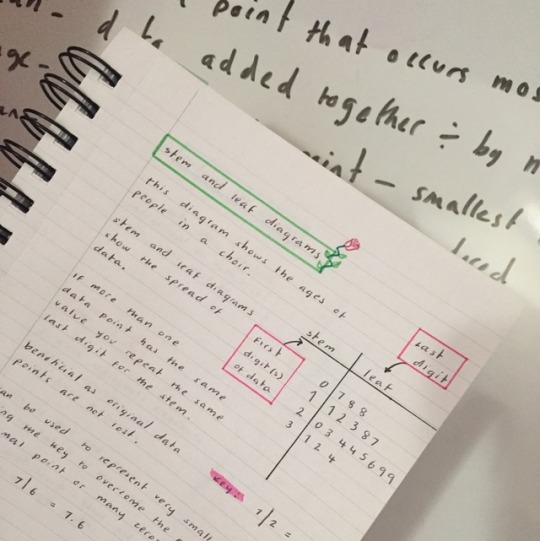 point that occurs mos
added together ÷ by m
smallest
stem and leaf diagrams
this diagram shows the ages of
people in a choir.
stem and leaf diagrams
show the spread of
data.
if more than one
data point has the same
value you repeat the same
last digit for the stem.
beneficial as original data
points are not lost.
can be used to represent very small
the key to overcome the
mal point or many zero
7|6 = 7.6
First
digit(s)
of data
stem
leaf
Last
digit
0 7 8 8
1 1 2 3 8 7
2 0 3 4 4 5 6 9 9
3 1 2 4
key:
1|2 =